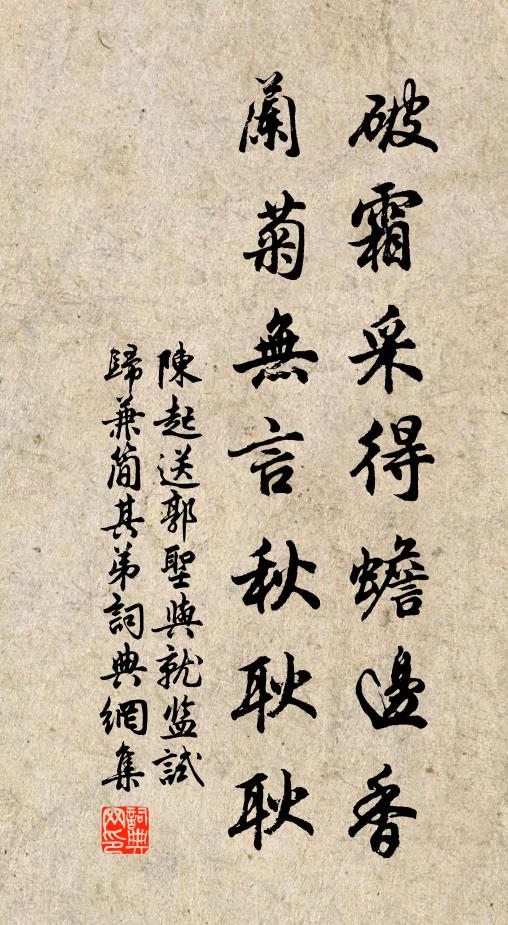 破霜采得蟾邊香
蘭菊無言秋耿耿
陳起送郭聖與就监試
歸兼簡其弟詞典網集
詞典网印